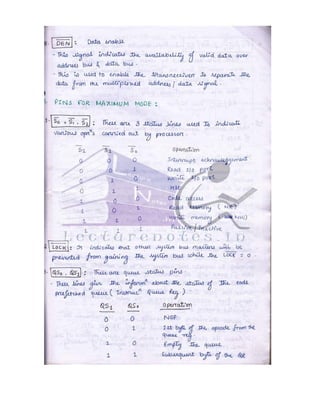 8. DEN : Data enable
- This signal indicates the availability of valid data over
address bus & data bus.
- This is used to enable the transreceiver to separate the
data from the multiplexed address/data signal.
PINS FOR MAXIMUM MODE :
1. S0, S1, S2 : These are 3 status lines used to indicate
various oprⁿs carried out by processor.
S2 S1 S0 operation
0 0 0 Interrupt acknowledgement
0 0 1 Read I/O port
0 1 0 Write I/O port
0 1 1 Halt
1 0 0 Code access
1 0 1 Read memory
1 1 0 Write memory
1 1 1 Passive/Inactive
LectureNotes.in
2. LOCK : It indicates that other system bus masters will be
prevented from gaining the system bus while the LOCK = 0
3. QS0, QS1 : These are queue status pins.
- These lines give the informⁿ about the status of the code
prefetched queue ( Queue Reg )
QS1 QS0 operation
0 0 NOP
0 1 1st byte of the opcode from the
queue reg.
1 0 Empty the queue
1 1 Subsequent byte of the